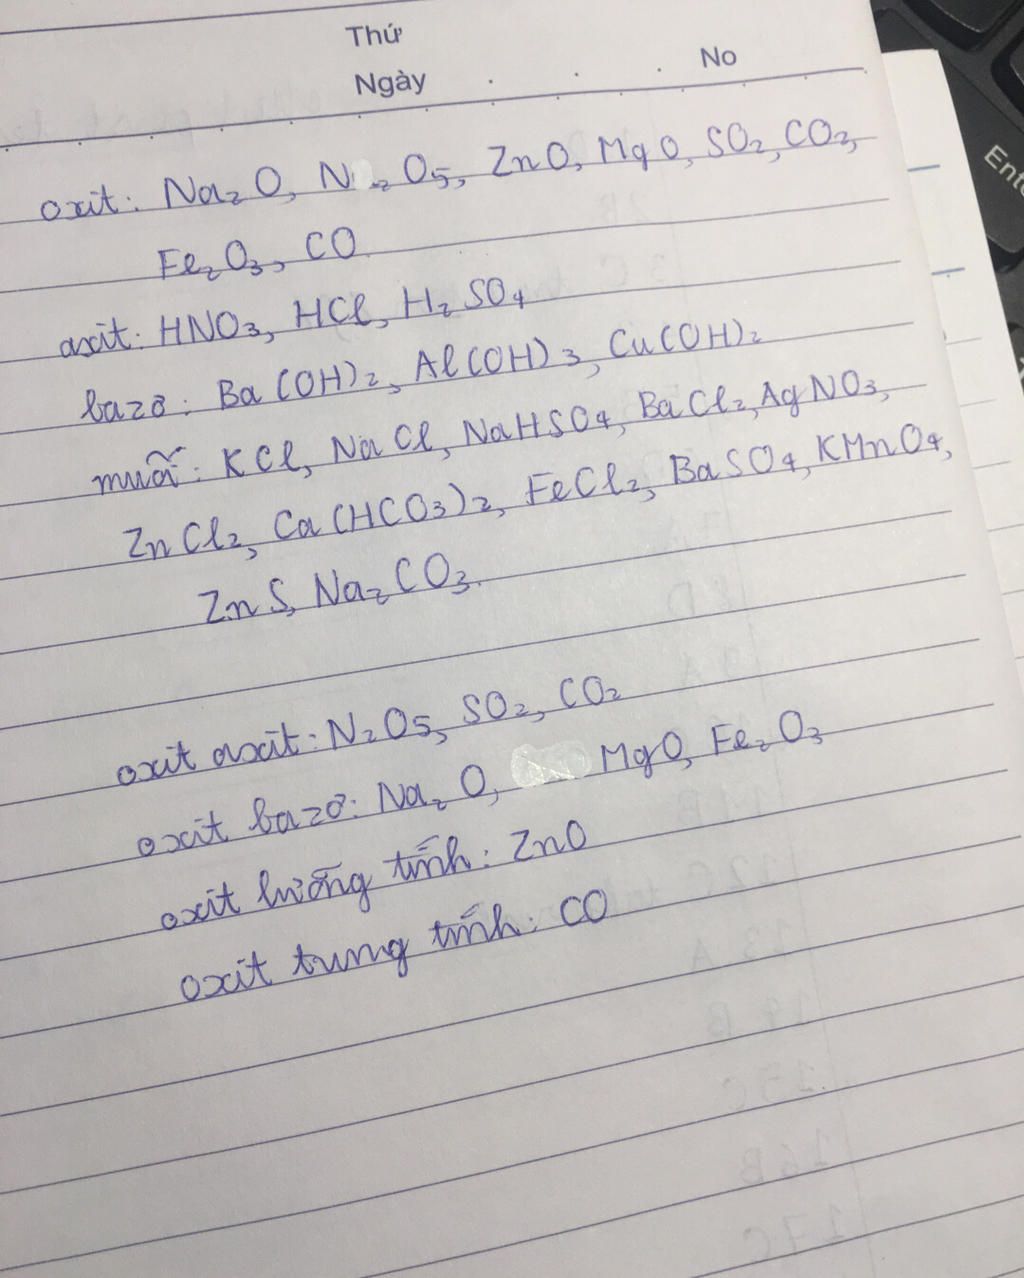 Thứ
Ngày . . . No
oxit: Na₂O, N₂O₅, ZnO, MgO, SO₂, CO₂,
Fe₂O₃, CO
axit: HNO₃, HCl, H₂SO₄
bazơ: Ba(OH)₂, Al(OH)₃, Cu(OH)₂
muối: KCl, NaCl, NaHSO₄, BaCl₂, AgNO₃,
ZnCl₂, Ca(HCO₃)₂, FeCl₂, BaSO₄, KMnO₄,
ZnS, Na₂CO₃.
oxit axit: N₂O₅, SO₂, CO₂
oxit bazơ: Na₂O, MgO, Fe₂O₃
oxit lưỡng tính: ZnO
oxit trung tính: CO